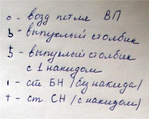 о - возд петля ВП
b - выпуклый столбик
5 - выпуклый столбик
с 1 накидом
ı - ст БН (без накида)
т - ст СН (с накидом)